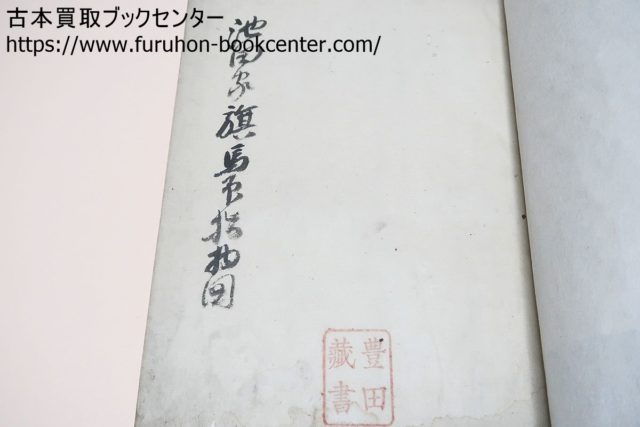 古本買取ブックセンター
https://www.furuhon-bookcenter.com/
池田家旗馬印指物図
豊田
蔵書